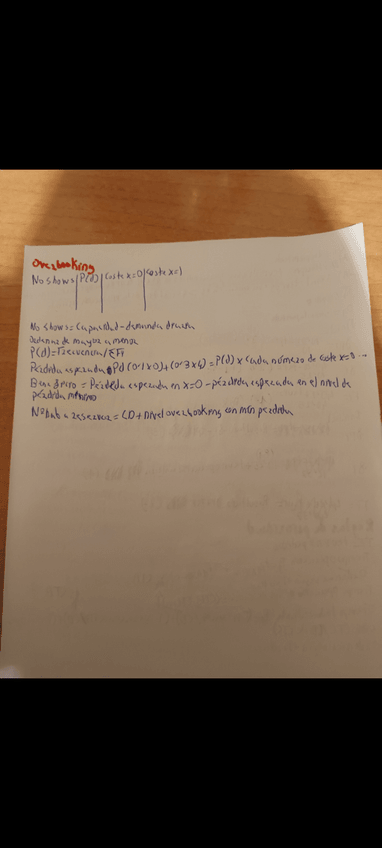 Overbooking
No shows | P(d) | Coste x=0 | Coste x=1
No shows = Capacidad - demanda diaria
Ordenar de mayor a menor
P(d) = Frecuencia / ΣFi
Pérdida esperada Pd (0'1x0) + (0'3x4) = P(d) x cada número de coste x=0 ...
Beneficio = Pérdida esperada en x=0 - pérdida esperada en el nivel de
pérdida mínimo
Nº hab a reservar = CD + nivel overbooking con mín pérdida